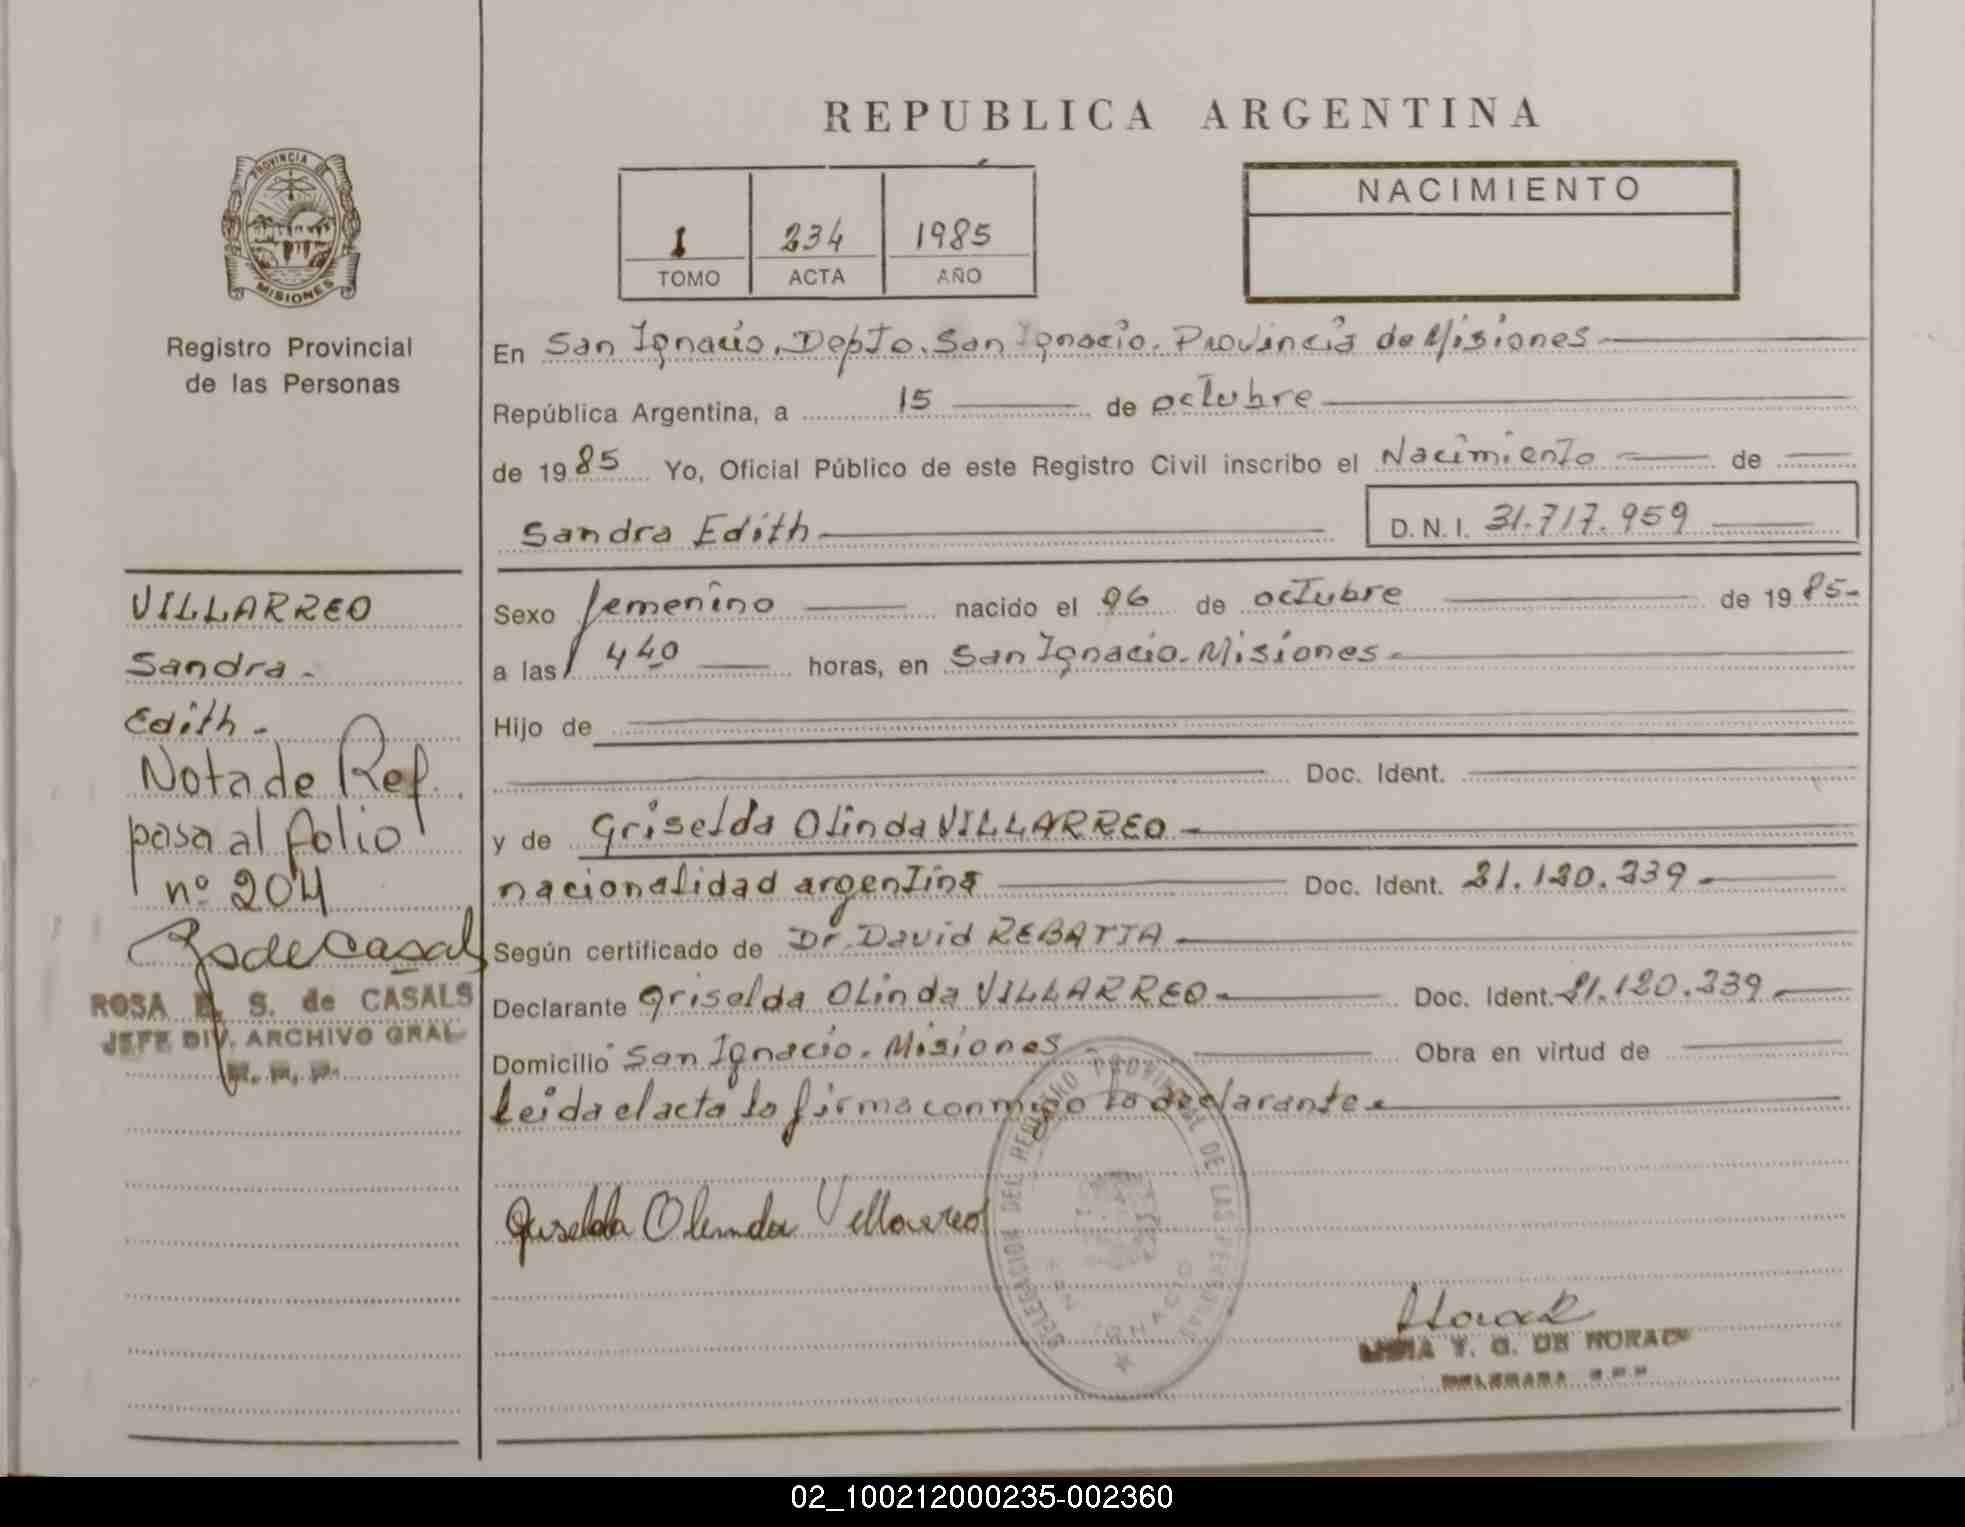 REPUBLICA ARGENTINA
PROVINCIA DE
MISIONES
Registro Provincial
de las Personas
1 234 1985
TOMO ACTA AÑO
NACIMIENTO
En San Ignacio, Depto. San Ignacio. Provincia de Misiones
República Argentina, a 15 de octubre
de 1985 Yo, Oficial Público de este Registro Civil inscribo el Nacimiento de
Sandra Edith D.N.I. 31.717.959
VILLARREO
Sandra -
Edith -
Nota de Ref.
pasa al folio
nº 204
ROSA E. S. de CASALS
JEFE DIV. ARCHIVO GRAL
Sexo femenino nacido el 06 de octubre de 1985-
a las 440 horas, en San Ignacio. Misiones.
Hijo de
Doc. Ident.
y de Griselda Olinda VILLARREO
nacionalidad argentina Doc. Ident. 21.120.239
Según certificado de Dr. David REBATTA
Declarante Griselda Olinda VILLARREO Doc. Ident. 21.120.239
Domicilio San Ignacio. Misiones Obra en virtud de
Leida el acta la firma conmigo la declarante.
Griselda Olinda Villarreo
DELEGACION DEL REGISTRO PROVINCIAL DE LAS PERSONAS
SAN IGNACIO
Y. G. DE
02_100212000235-002360